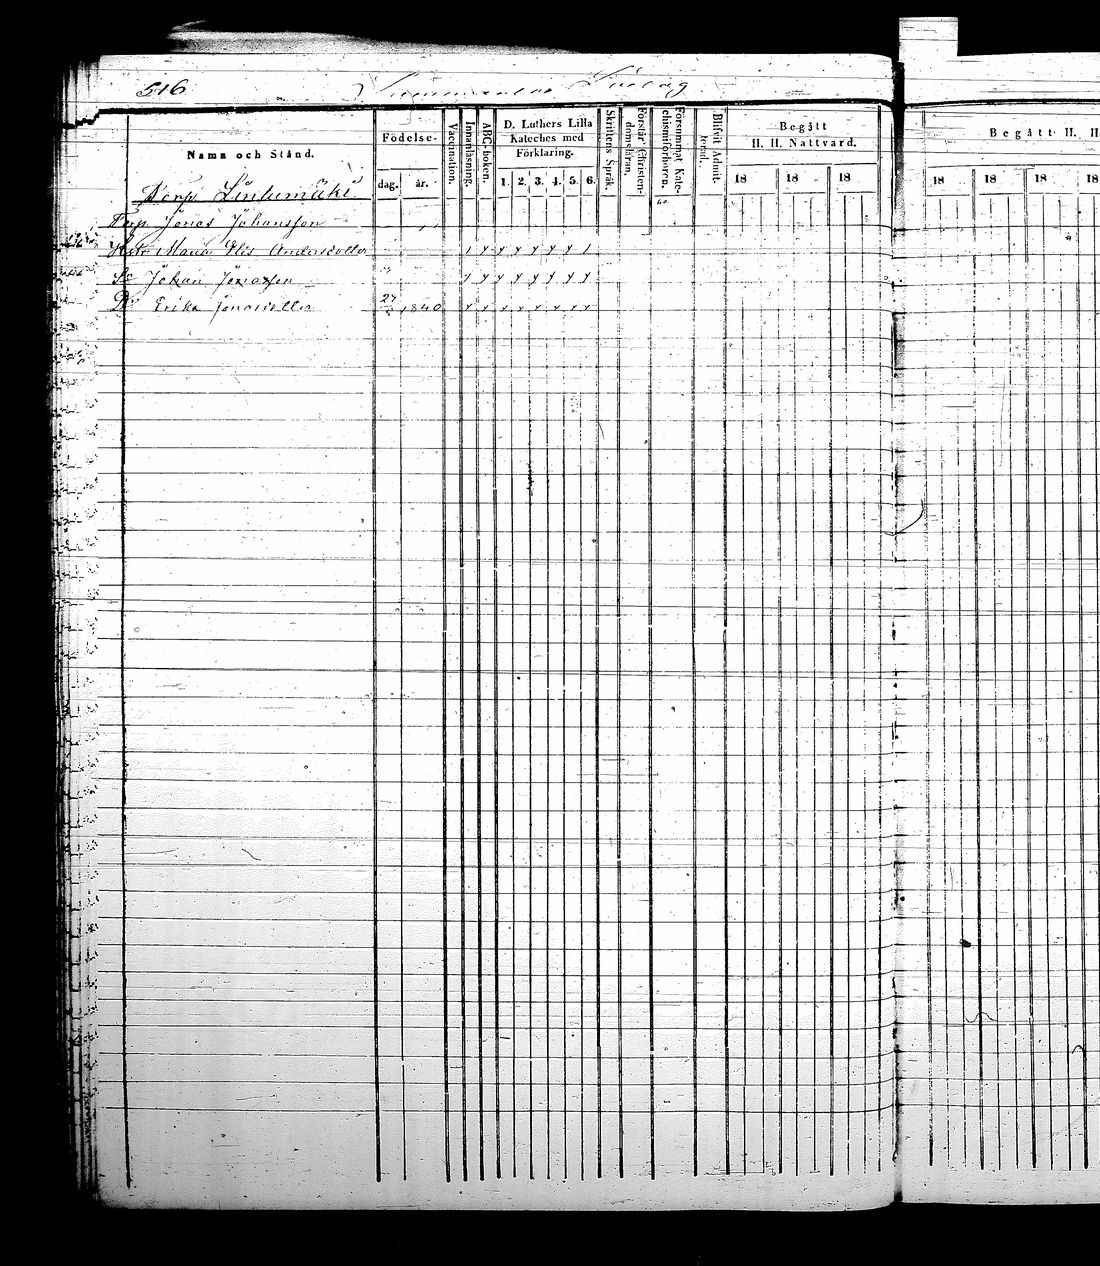 516
Namn och Stånd.
Födelse-
dag. år.
Vaccination.
Innanläsning.
ABC-boken.
D. Luthers Lilla
Kateches med
Förklaring.
1. 2. 3. 4. 5. 6.
Skriftens Språk.
Förstår Christen-
domsläran.
Försummat Kate-
chismiförhören.
Blifvit Admit-
terad.
Begått
H. H. Nattvard.
18 18 18
Begått H. H
18 18 18 18
Torp. Lintumäki
Torp. Jonas Johansson
Maria Andersdotter
Sn Johan Jonasson
Dr Erika Jonasdotter 1840